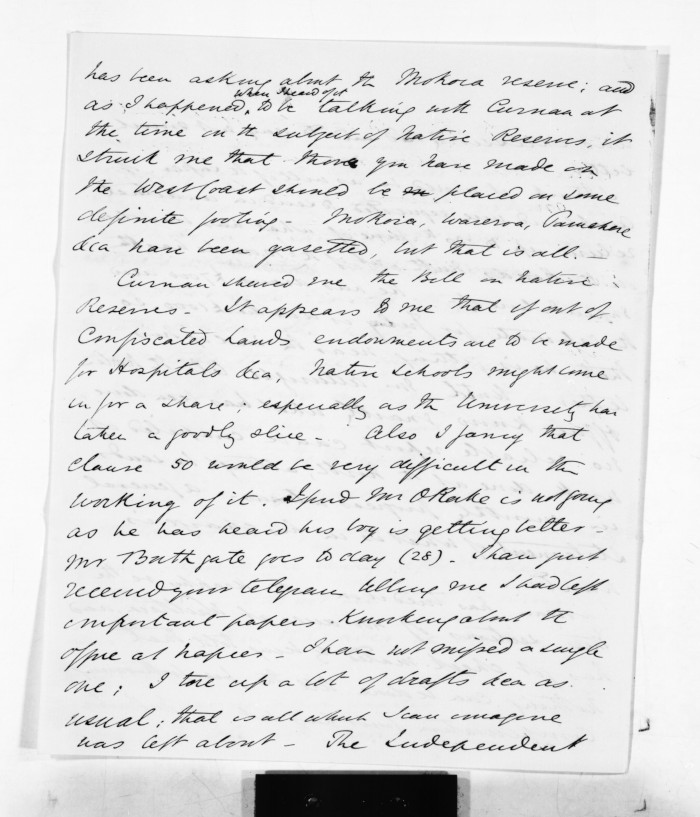 has been asking about the Mokoia reserve; and
when I heard of it
as I happened, to be talking with Curnan at
the time on the subject of Native Reserves, it
struck me that those you have made on
the West Coast should be placed on some
definite footing - Mokoia, Waeroa,
&ca have been gazetted, but that is all. -
Curnan shewed me the Bill on Native
Reserves - It appears to me that if out of
Confiscated lands endowments are to be made
for Hospitals &ca, Native Schools might come
in for a share; especially as the University has
taken a goodly slice - Also I fancy that
clause 50 would be very difficult in the
working of it. I find Mr O'Rorke is not going
as he has heard his boy is getting better -
Mr Bathgate goes to day (28) - I have just
received your telegram telling me I had left
important papers knocking about the
office at Napier - I have not missed a single
one; I tore up a lot of drafts &ca as
usual; that is all which I can imagine
was left about - The Independent